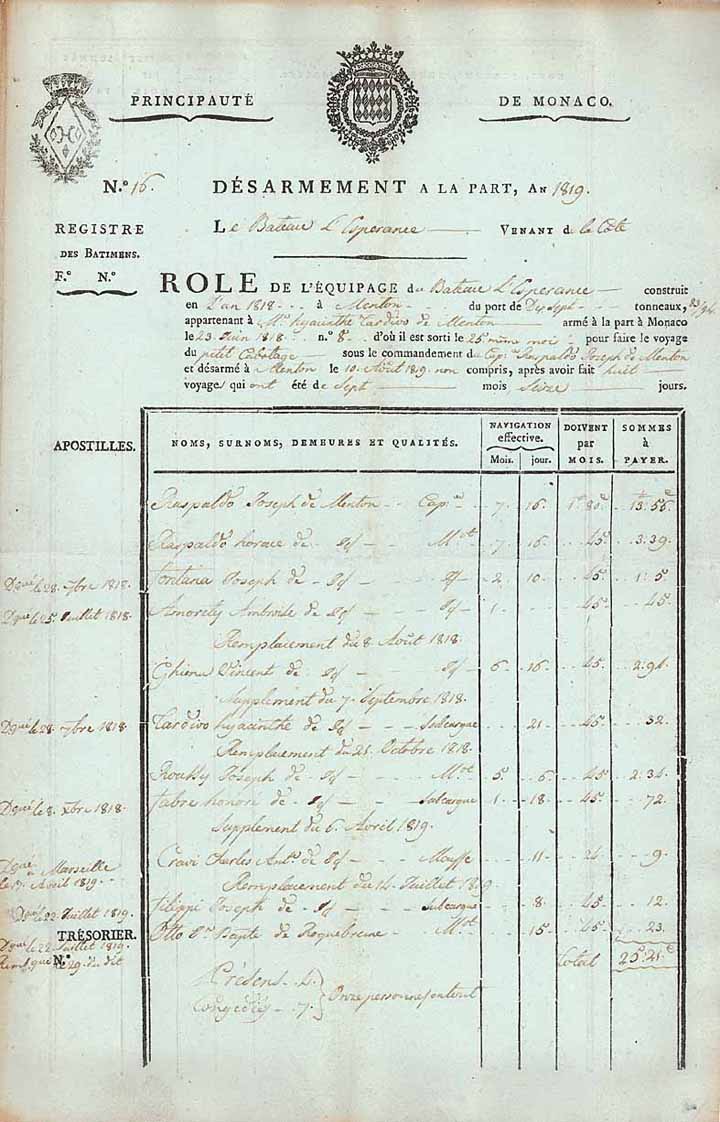 PRINCIPAUTÉ DE MONACO.
N.º 16. DÉSARMEMENT A LA PART, AN 1819.
REGISTRE DES BATIMENS.
F.º N.º
Le Bateau L'Esperance VENANT de la Côte
ROLE DE L'ÉQUIPAGE du Bateau L'Esperance construit
en L'an 1818 à Menton du port de Dix Sept tonneaux, 23/94
appartenant à Mr. hyacinthe Tardivo de Menton armé à la part à Monaco
le 23 Juin 1818 n.º 8. d'où il est sorti le 25 même mois pour faire le voyage
du petit Cabotage sous le commandement du Cap.ne Raspaldo Joseph de Menton
et désarmé à Menton le 10 Août 1819 non compris, après avoir fait huit
voyages qui ont été de Sept mois Seize jours.
APOSTILLES.
NOMS, SURNOMS, DEMEURES ET QUALITÉS.
NAVIGATION effective.
Mois. jour.
DOIVENT par MOIS.
SOMMES à PAYER.
Raspaldo Joseph de Menton Cap.ne 7. 16. 1. 80. 13. 56.
Raspaldo horace de Id. M.ot 7. 16. 45. 3. 39.
Dqué le 28. 7bre 1818. Fontana Joseph de Id. Id. 2. 10. 45. 1. 5.
Dqué le 25. Juillet 1818. Amorety Ambroise de Id. Id. 1. 45. 45.
Remplacement du 8 Août 1818.
Ghiena Vincent de Id. Id. 6. 16. 45. 2. 94.
Supplement du 7 Septembre 1818.
Dqué le 28. 7bre 1818. Tardivo hyacinthe de Id. Subcargue 21. 45. 32.
Remplacement du 21. Octobre 1818.
Joseph de Id. M.ot 5. 6. 45. 2. 34.
Dqué le 8. xbre 1818. Fabre honoré de Id. Subcargue 1. 18. 45. 72.
Supplement du 6. Avril 1819.
Dqué à Marseille
le 17. Avril 1819. Cravi Charles Ant.e de Id. Mousse 11. 24. 9.
Remplacement du 14. Juillet 1819
Dqué le 22. Juillet 1819. Filippi Joseph de Id. Subcargue 8. 45. 12.
TRÉSORIER. Otto Bapte de Roquebrune M.ot 15. 45. 23.
Dqué le 22. Juillet 1819.
Rembqué le 29. du dit
N.º
Total 25. 21.
Présens 4.
Congediés 7.
Onze personnes en tout